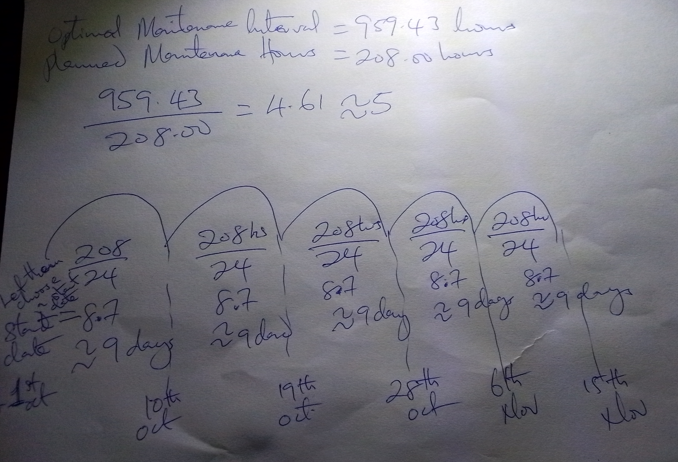 Optimal Maintenance Interval = 959.43 hours
Planned Maintenance Hours = 208.00 hours
959.43 / 208.00 = 4.61 ≈ 5
208 / 24
= 8.7
≈ 9 days
208hs / 24
8.7
≈ 9 days
208hrs / 24
8.7
≈ 9 days
208hs / 24
8.7
≈ 9 days
208hr / 24
8.7
≈ 9 days
Let them
choose
start
date
1st oct
10th oct
19th oct.
28th oct
6th Nov
15th Nov